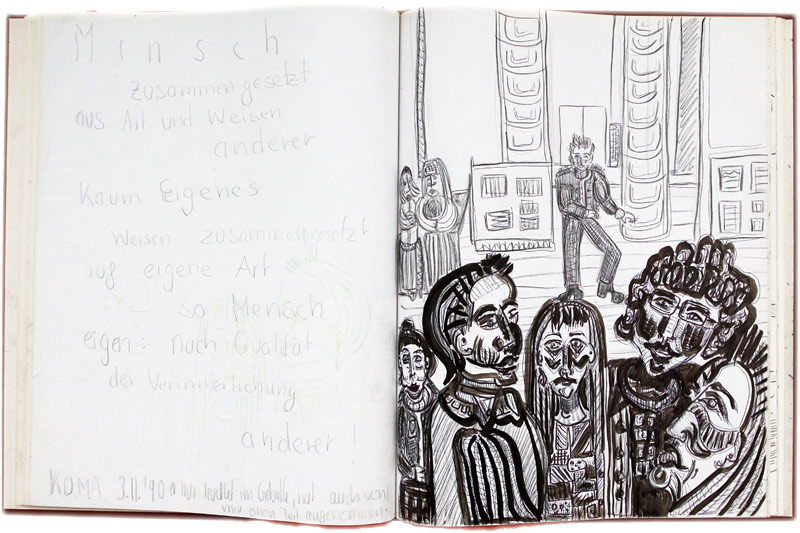 Mensch
zusammengesetzt
aus Art und Weisen
anderer
Kaum Eigenes
Weisen zusammengesetzt
auf eigene Art
– so Mensch
eigen: nach Qualität
der Verinnerlichung
anderer!
KOMA 3.11.'90 nur im Gefolle, hat auch von
mir einen Teil angenommen!